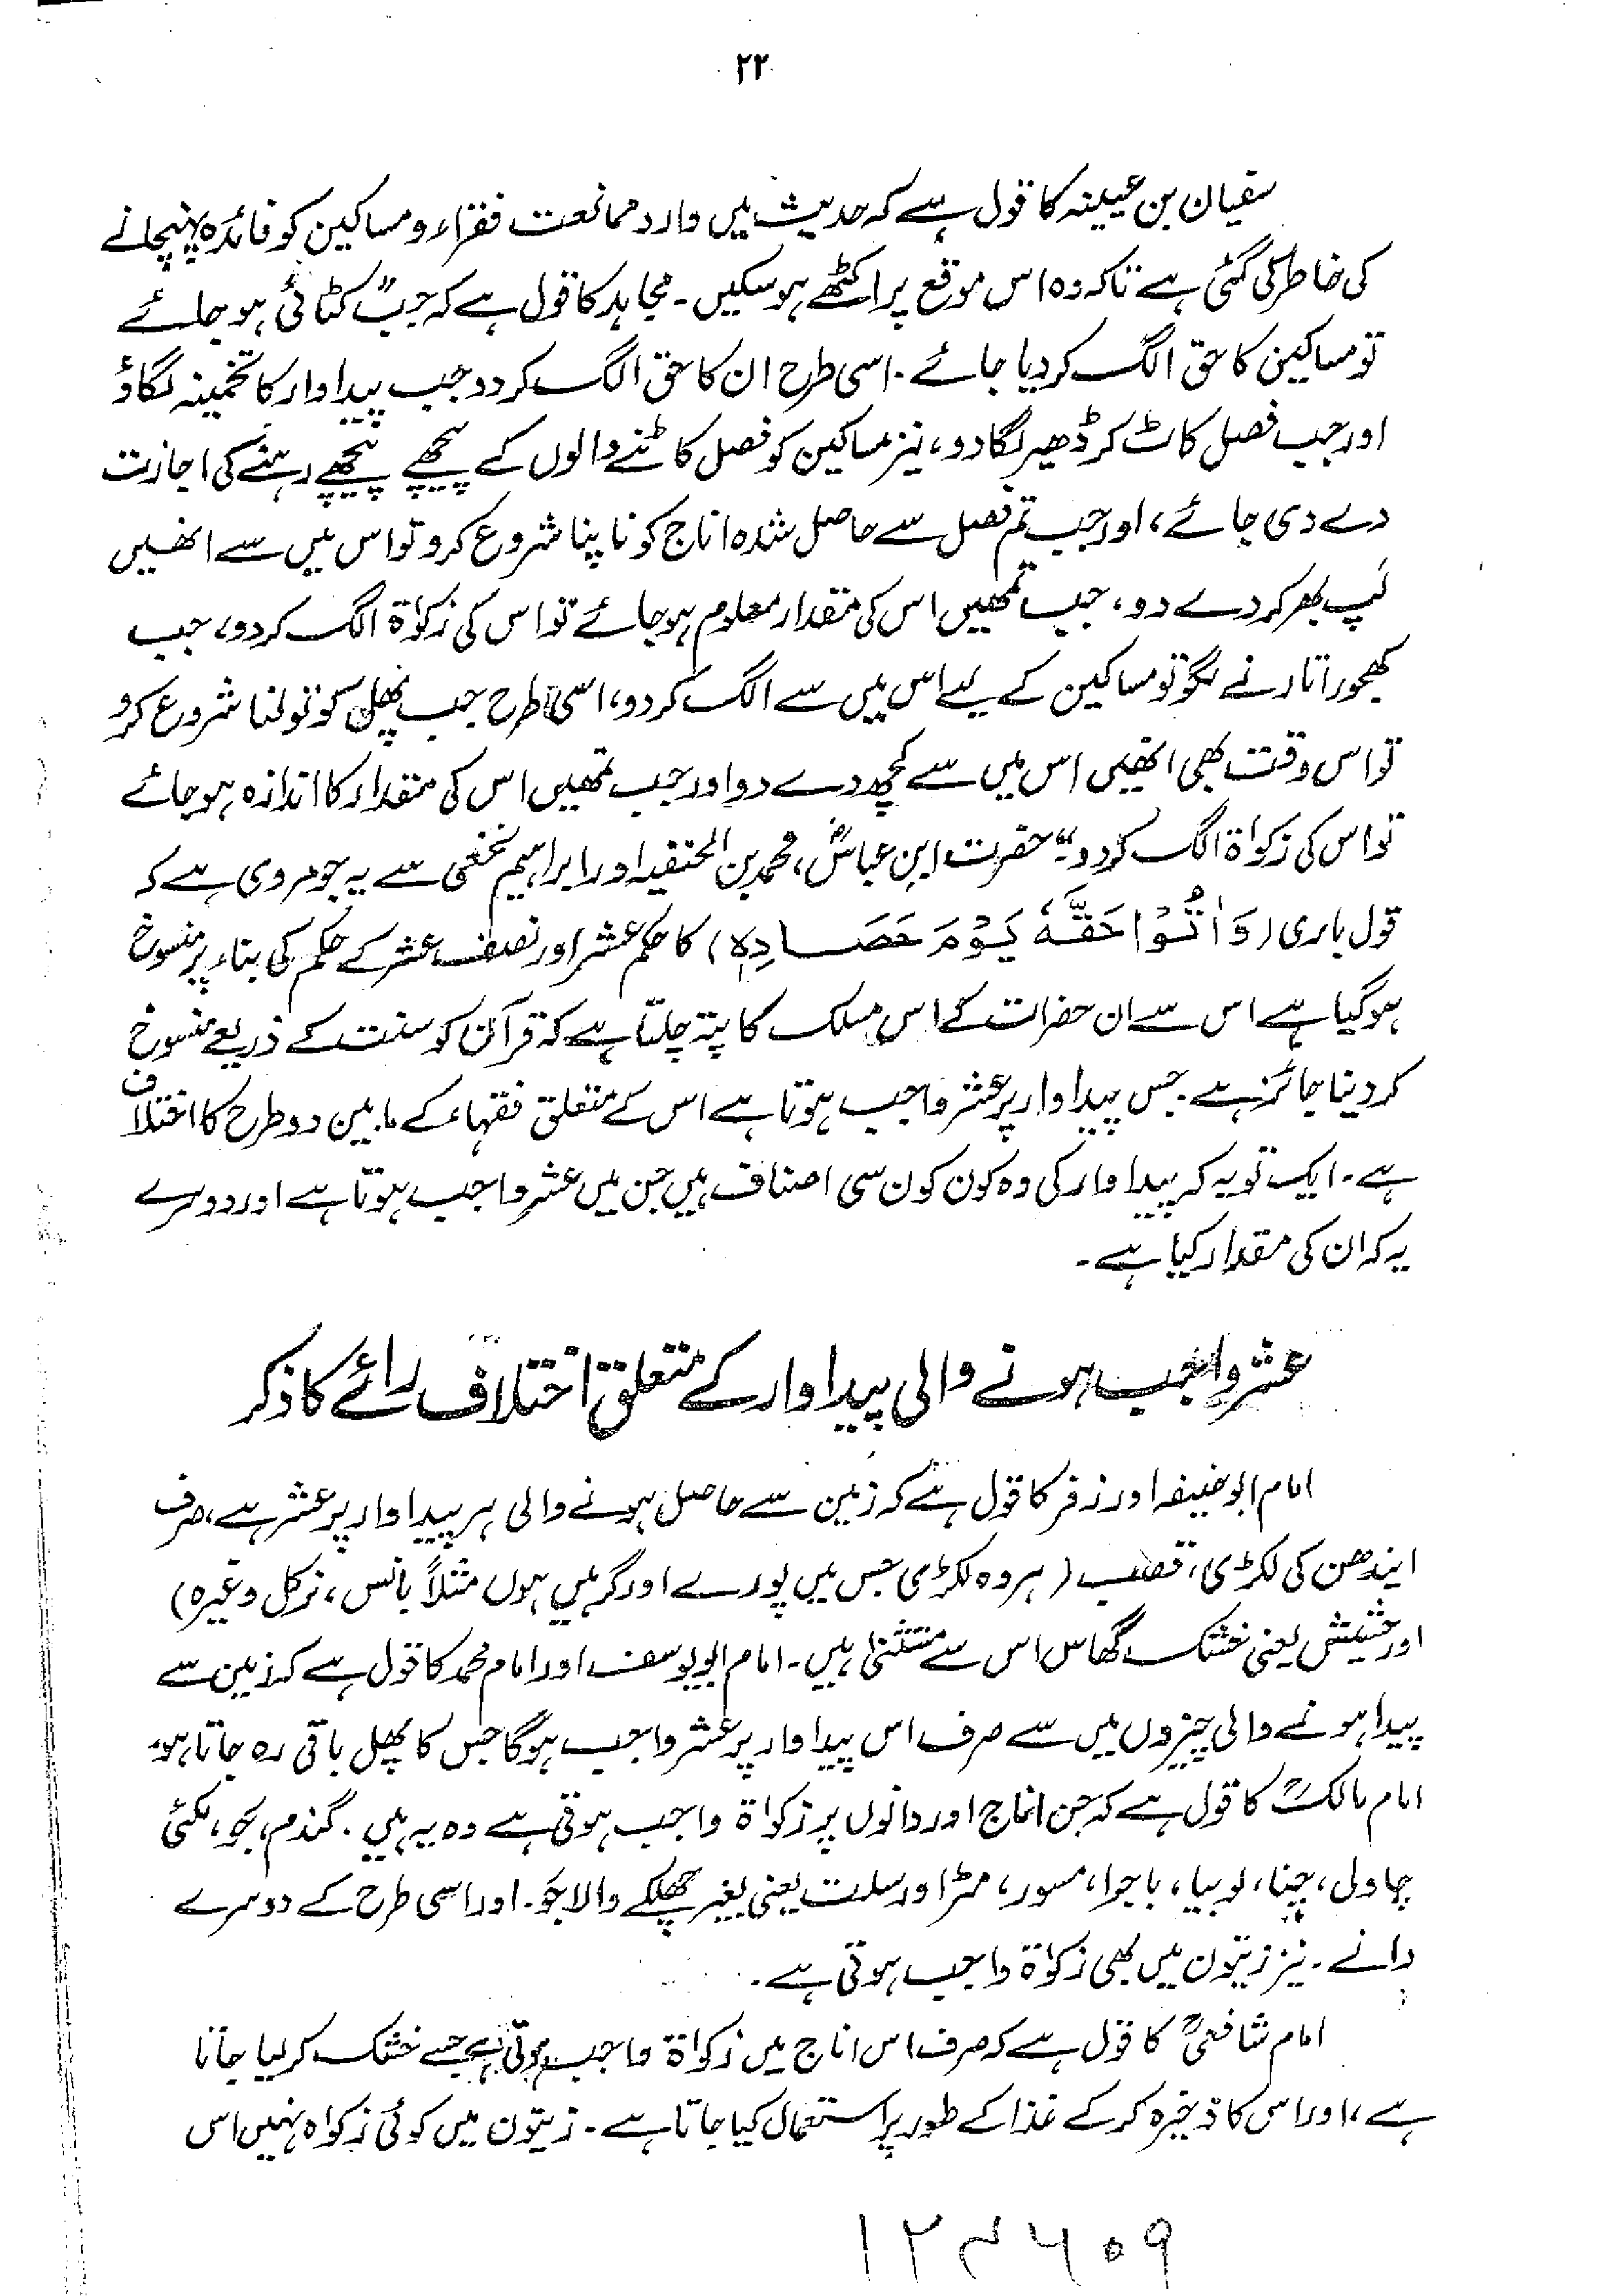 ۲۲
سفیان بن عیینہ کا قول ہے کہ حدیث میں وارد ممانعت فقراء و مساکین کو فائدہ پہنچانے
کی خاطر کی گئی ہے تاکہ وہ اس موقع پر اکٹھے ہو سکیں۔ مجاہد کا قول ہے کہ جب کٹائی ہو جائے
تو مساکین کا حق الگ کر دیا جائے۔ اسی طرح ان کا حق الگ کر دو جب پیداوار کا تخمینہ لگاؤ
اور جب فصل کاٹ کر ڈھیر لگا دو، نیز مساکین کو فصل کاٹنے والوں کے پیچھے پیچھے رہنے کی اجازت
دے دی جائے، اور جب تم فصل سے حاصل شدہ اناج کو ناپنا شروع کرو تو اس میں سے انھیں
لَپ بھر کر دے دو، جب تمھیں اس کی مقدار معلوم ہو جائے تو اس کی زکوٰۃ الگ کر دو، جب
کھجور اتارنے لگو تو مساکین کے لیے اس میں سے الگ کر دو، اسی طرح جب پھل کو تولنا شروع کرو
تو اس وقت بھی انھیں اس میں سے کچھ دے دو اور جب تمھیں اس کی مقدار کا اندازہ ہو جائے
تو اس کی زکواۃ الگ کر دو۔" حضرت ابن عباسؓ، محمد بن الحنفیہ اور ابراہیم نخعی سے یہ جو مروی ہے کہ
قول باری (وَاٰتُوْا حَقَّہٗ یَوْمَ حَصَادِہٖ) کا حکم عشر اور نصف عشر کے حکم کی بناء پر منسوخ
ہو گیا ہے اس سے ان حضرات کے اس مسلک کا پتہ چلتا ہے کہ قرآن کو سنت کے ذریعے منسوخ
کر دینا جائز ہے۔ جس پیداوار پر عشر واجب ہوتا ہے اس کے متعلق فقہاء کے مابین دو طرح کا اختلاف
ہے۔ ایک تو یہ کہ پیداوار کی وہ کون کون سی اصناف ہیں جن میں عشر واجب ہوتا ہے اور دوسرے
یہ کہ ان کی مقدار کیا ہے۔
عشر واجب ہونے والی پیداوار کے متعلق اختلاف رائے کا ذکر
امام ابو حنیفہ اور زفر کا قول ہے کہ زمین سے حاصل ہونے والی ہر پیداوار پر عشر ہے، صرف
ایندھن کی لکڑی، قصب (ہر وہ لکڑی جس میں پورے اور گرہیں ہوں مثلاً بانس، نرکل وغیرہ)
اور حشیش یعنی خشک گھاس اس سے مستثنیٰ ہیں۔ امام ابو یوسف اور امام محمد کا قول ہے کہ زمین سے
پیدا ہونے والی چیزوں میں سے صرف اس پیداوار پر عشر واجب ہوگا جس کا پھل باقی رہ جاتا ہو۔
امام مالکؒ کا قول ہے کہ جن اناج اور دانوں پر زکواۃ واجب ہوتی ہے وہ یہ ہیں۔ گندم، جَو، مکئی
چاول، چنا، لوبیا، باجرا، مسور، مٹر اور سلت یعنی بغیر چھلکے والا جَو۔ اور اسی طرح کے دوسرے
دانے۔ نیز زیتون میں بھی زکوٰۃ واجب ہوتی ہے۔
امام شافعیؒ کا قول ہے کہ صرف اس اناج میں زکواۃ واجب ہوتی ہے جسے خشک کر لیا جاتا
ہے، اور اس کا ذخیرہ کر کے غذا کے طور پر استعمال کیا جاتا ہے۔ زیتون میں کوئی زکواہ نہیں اس
۱۲۴۶۰۹